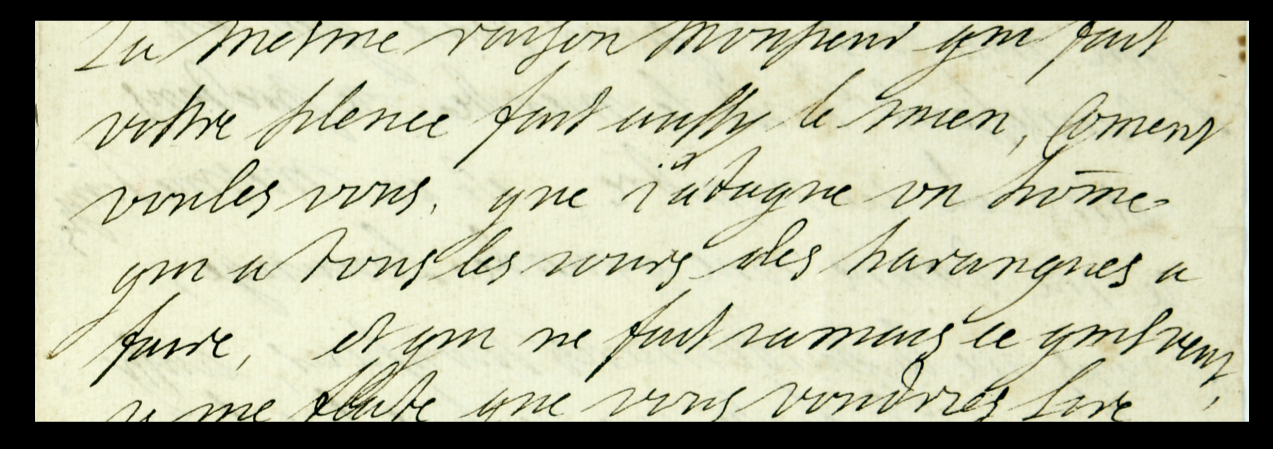 La mesme raison Monsieur qui fait
vostre silence fait aussy le mien, Coment
voules vous, que i'ataque un hōme
qui a tous les iours des harangues a
faire, et qui ne fait iamais ce quil veut,
ie me flate que vous voudries lire